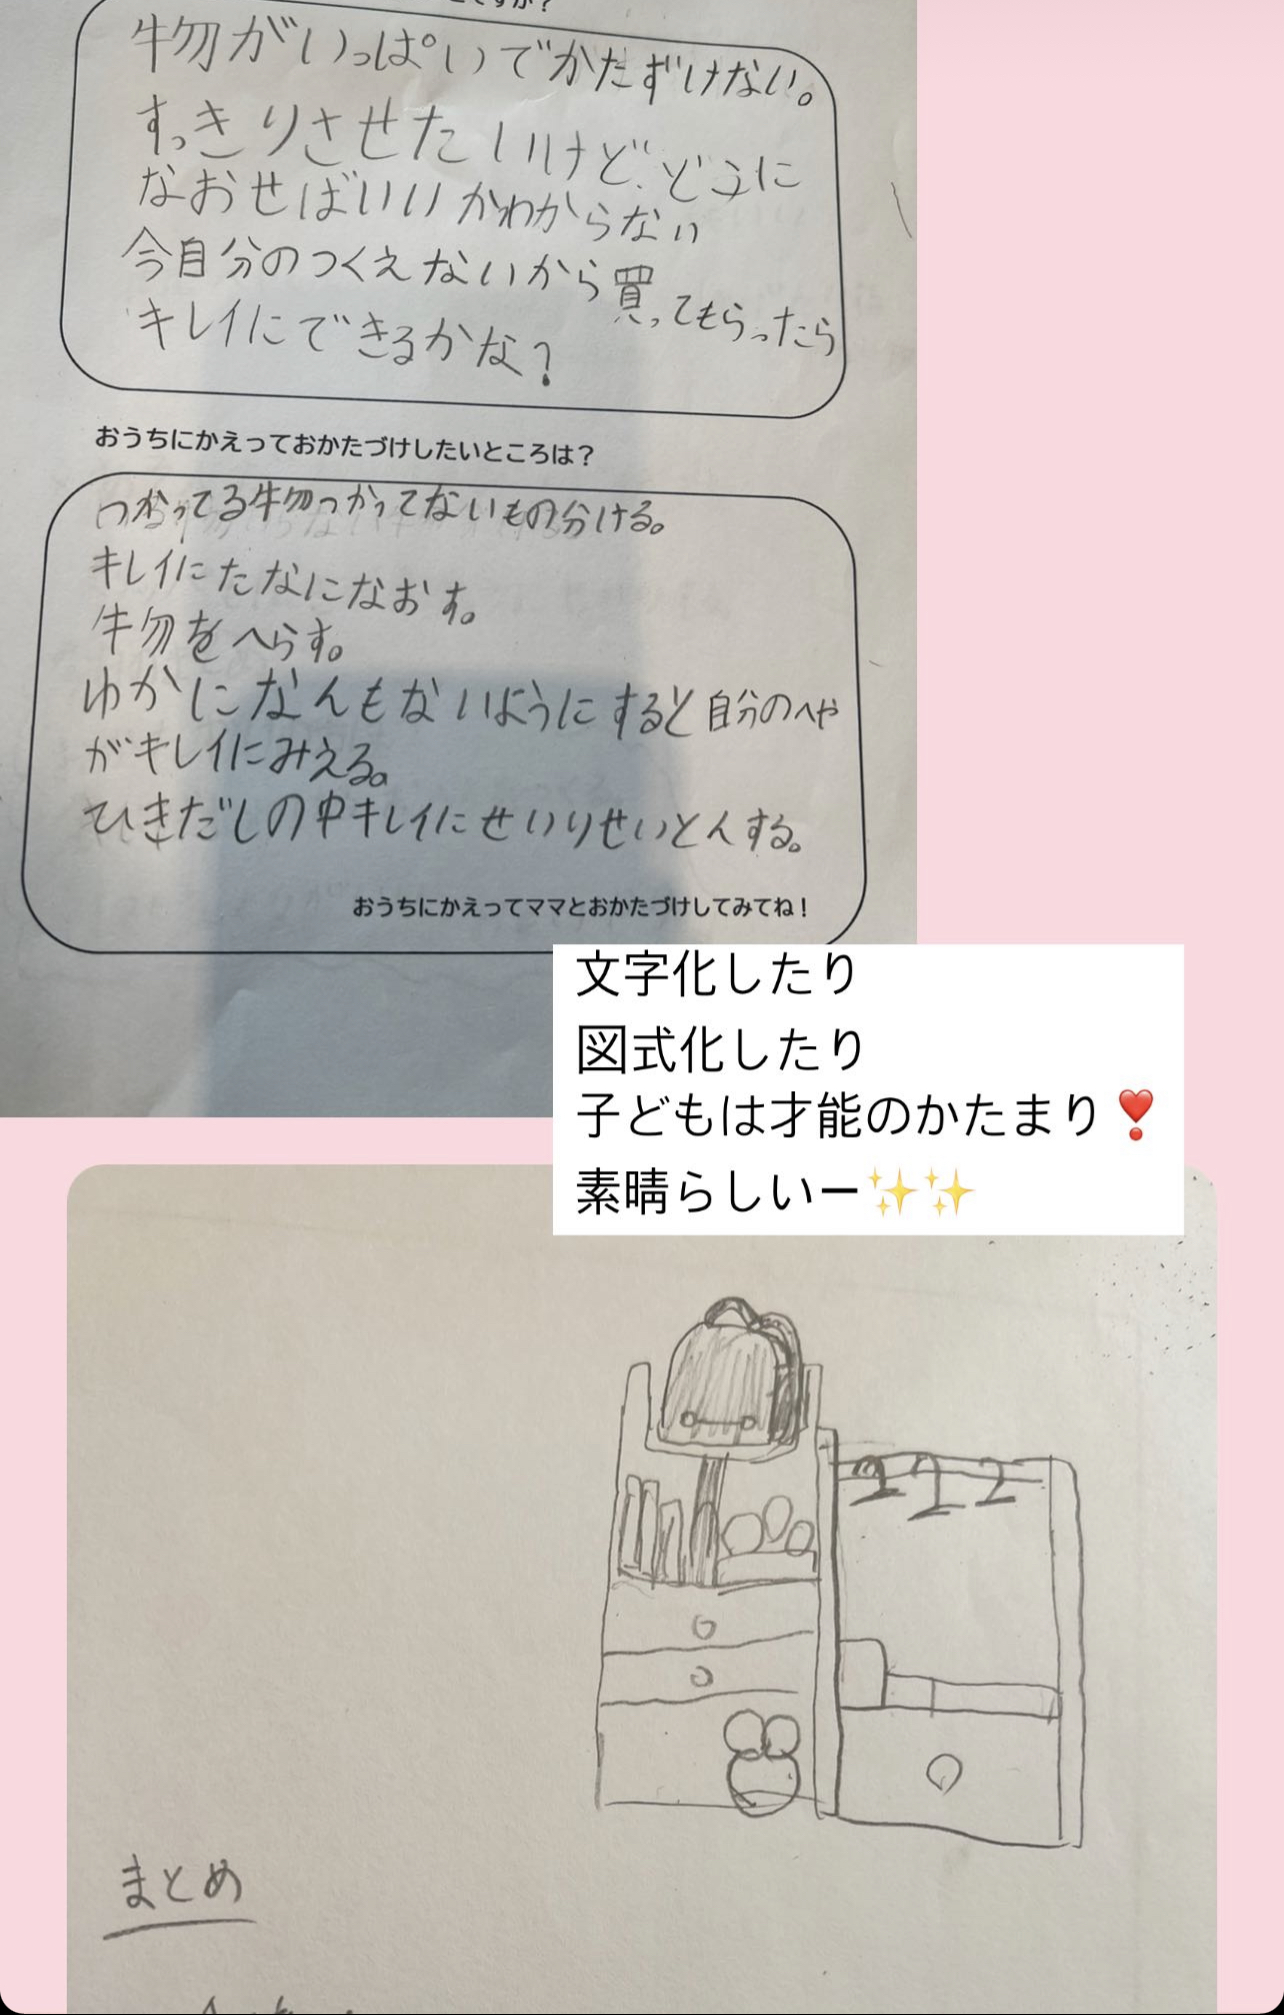 物がいっぱいでかたずけない。
すっきりさせたいけど、どこに
なおせばいいかわからない
今自分のつくえないから買ってもらったら
キレイにできるかな?
おうちにかえっておかたづけしたいところは?
つかってる物つかってないもの分ける。
キレイにたなになおす。
物をへらす。
ゆかになんもないようにすると自分のへや
がキレイにみえる。
ひきだしの中キレイにせいりせいとんする。
おうちにかえってママとおかたづけしてみてね!
文字化したり
図式化したり
子どもは才能のかたまり❣️
素晴らしいー✨✨
まとめ